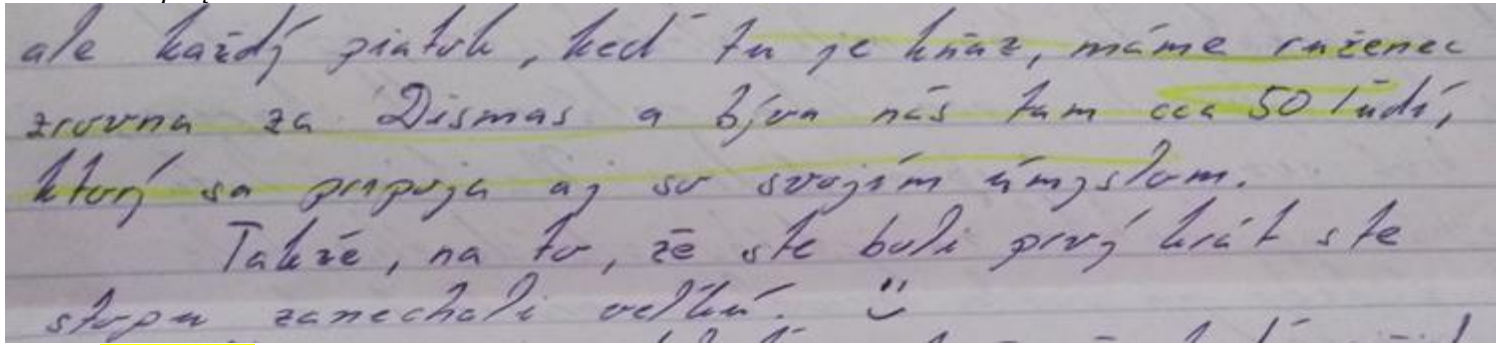 ale každý piatok, keď tu je kňaz, máme ruženec
zrovna za Dismas a býva nás tam cca 50 ľudí,
ktorý sa pripoja aj so svojím úmyslom.
Takže, na to, že ste boli prvý krát ste
stopu zanechali veľkú.